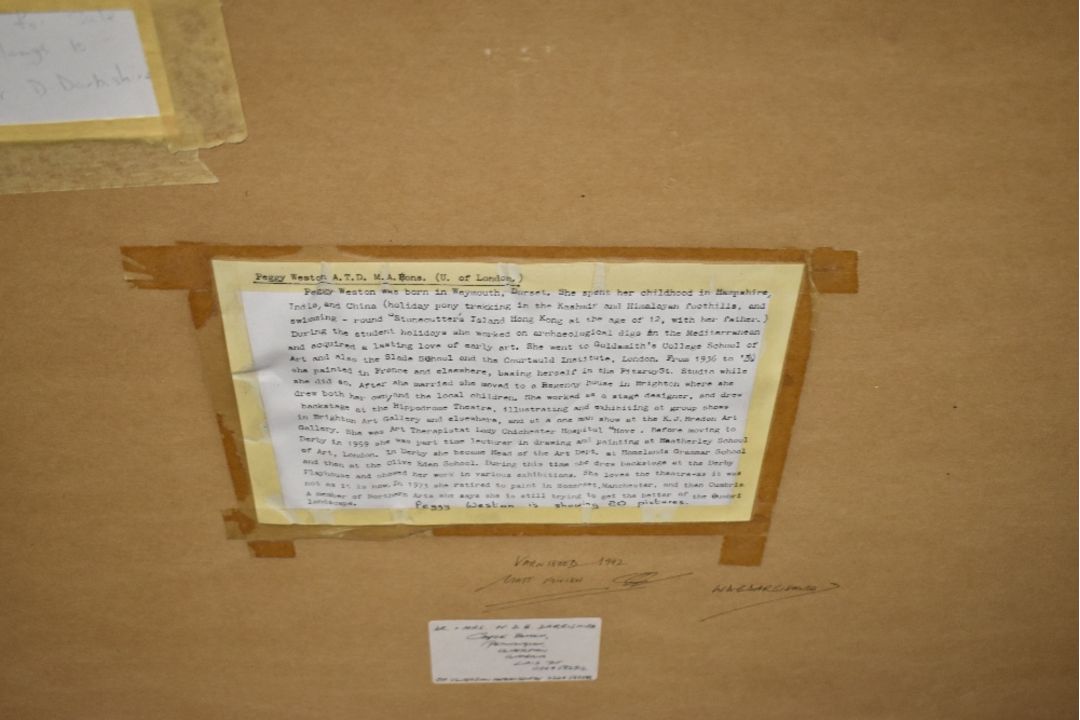 for Sale
D. Darbishire
Peggy Weston A.T.D. M.A.Hons. (U. of London.)
Peggy Weston was born in Weymouth, Dorset. She spent her childhood in Hampshire,
India, and China (holiday pony trekking in the Kashmir and Himalayan foothills, and
swimming - round "Stonecutter's Island Hong Kong at the age of 12, with her father.)
During the student holidays she worked on archaeological digs in the Mediterranean
and acquired a lasting love of early art. She went to Goldsmith's College School of
Art and also the Slade School and the Courtauld Institute, London. From 1936 to
she painted in France and elsewhere, basing herself in the FitzroySt. Studio while
she did so. After she married she moved to a Regency house in Brighton where she
drew both her own and the local children. She worked as a stage designer, and drew
backstage at the Hippodrome Theatre, illustrating and exhibiting at group shows
in Brighton Art Gallery and elsewhere, and at a one man show at the K.J. Headon Art
Gallery. She was Art Therapistat Lady Chichester Hospital "Hove. Before moving to
Derby in 1959 she was part time lecturer in drawing and painting at Heatherley School
of Art, London. In Derby she became Head of the Art Dept. at Homelands Grammar School
and then at the Clive Eden School. During this time she drew backstage at the Derby
Playhouse and showed her work in various exhibitions. She loves the theatre-as it was
not as it is now. In 1973 she retired to paint in Somerset, Manchester, and then Cumbria
A member of Northern Arts she says she is still trying to get the better of the
landscape. Peggy Weston is showing 20 pictures.
VARNISHED 1992
MATT FINISH
DR + MRS. DARBISHIRE
CUMBRIA